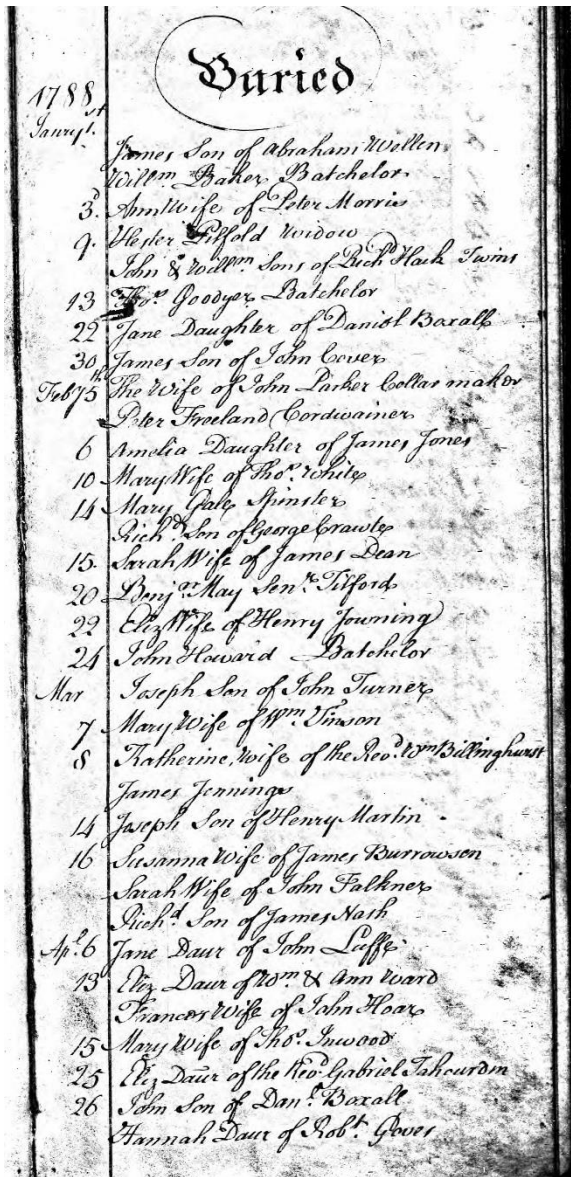 Buried
1788
Janry 1st James Son of Abraham Wollen
Willm Baker Batchelor
3d Ann Wife of Peter Morris
9. Hester Pitfold Widow
John & Willm Sons of Richd Hack Twins
13 Thos Goodyer Batchelor
22 Jane Daughter of Daniel Boxall
30 James Son of John Cover
Feby 5th The Wife of John Parker Collar maker
Peter Freeland Cordwainer
6 Amelia Daughter of James Jones
10 Mary Wife of Thos White
14 Mary Gale Spinster
Richd Son of George Crawte
15. Sarah Wife of James Dean
20 Benjn May Senr Tilford
22 Eliz Wife of Henry Jowning
24 John Howard Batchelor
Mar Joseph Son of John Turner
7 Mary Wife of Wm Vinson
8 Katherine Wife of the Revd Wm Billinghurst
James Jennings
14 Joseph Son of Henry Martin
16 Susanna Wife of James Burrowson
Sarah Wife of John Falkner
Richd Son of James Nash
Apl 6 Jane Daur of John Luffe
13 Eliz Daur of Wm & Ann Ward
Frances Wife of John Hoar
15 Mary Wife of Thos Inwood
25 Eliz Daur of the Revd Gabriel Tahourdin
26 John Son of Danl Boxall
Hannah Daur of Robt Goves